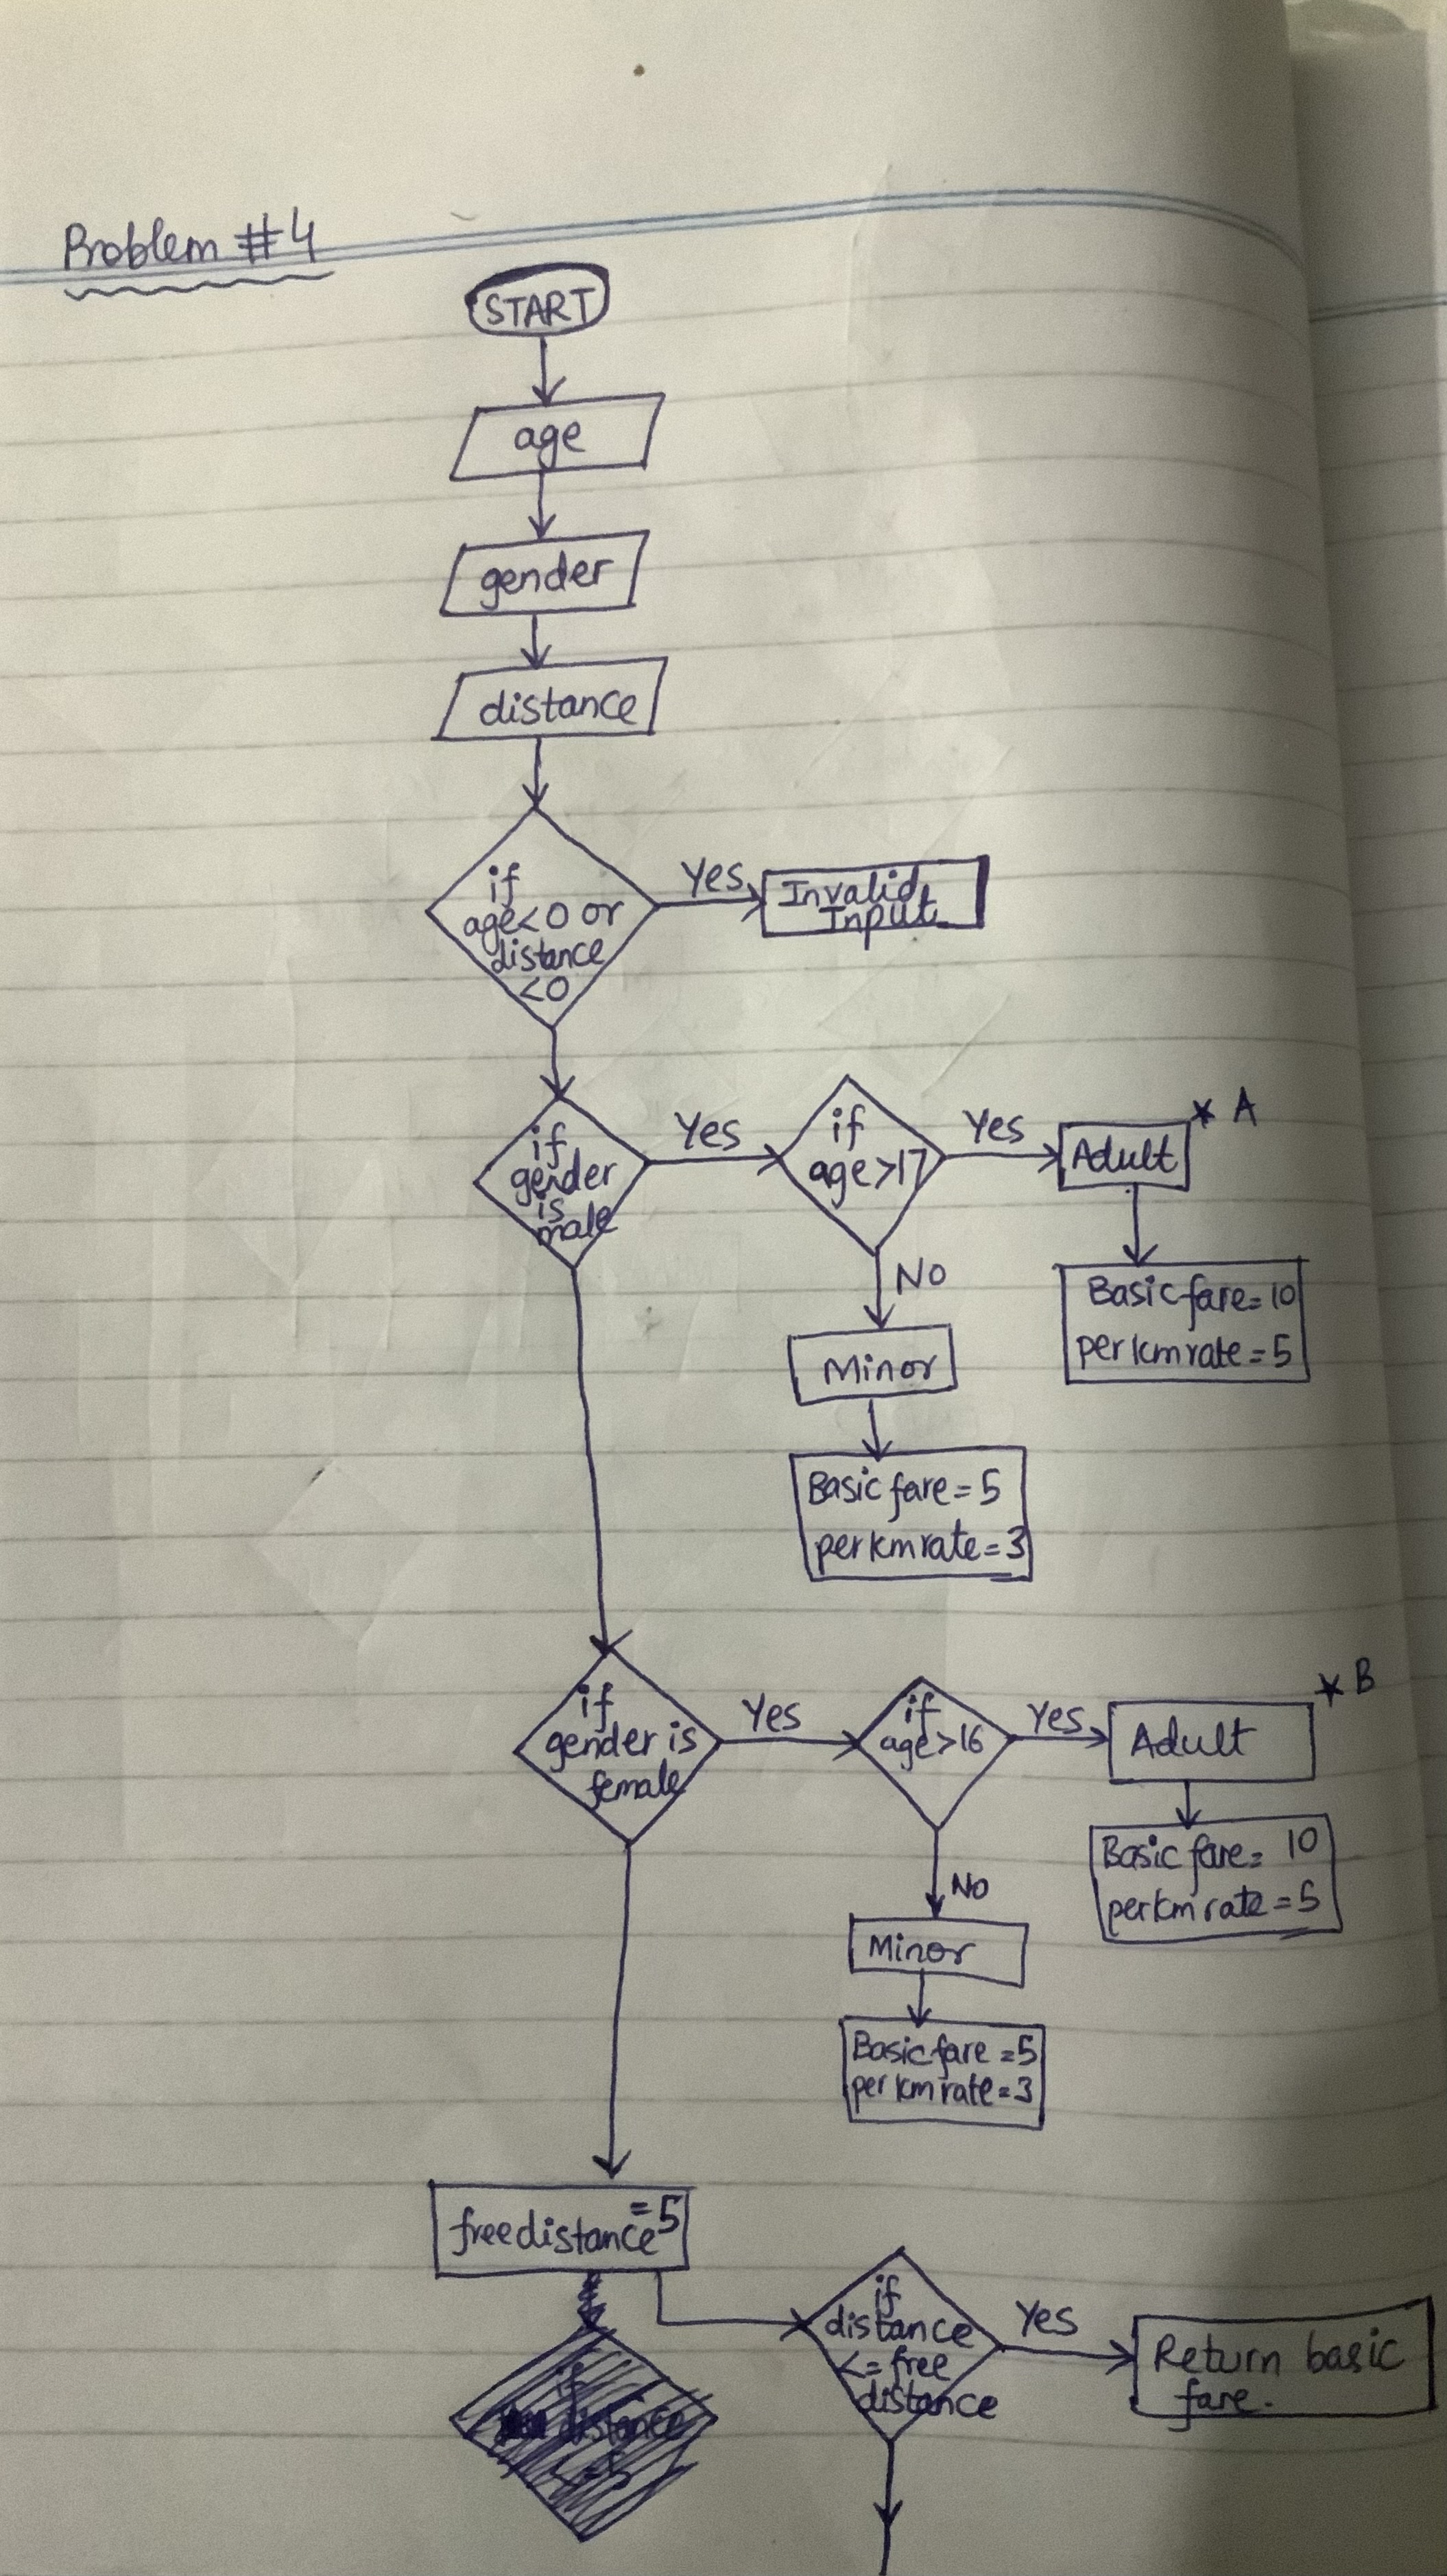 Problem #4
START
age
gender
distance
if
age<0 or
distance
<0
Yes
Invalid
Input
if
gender
is
male
Yes
if
age>17
Yes
Adult
* A
Basic fare= 10
per km rate = 5
No
Minor
Basic fare = 5
per km rate = 3
if
gender is
female
Yes
if
age>16
Yes
Adult
* B
Basic fare= 10
per km rate = 5
No
Minor
Basic fare =5
per km rate = 3
free distance =5
if
distance
<= free
distance
Yes
Return basic
fare.